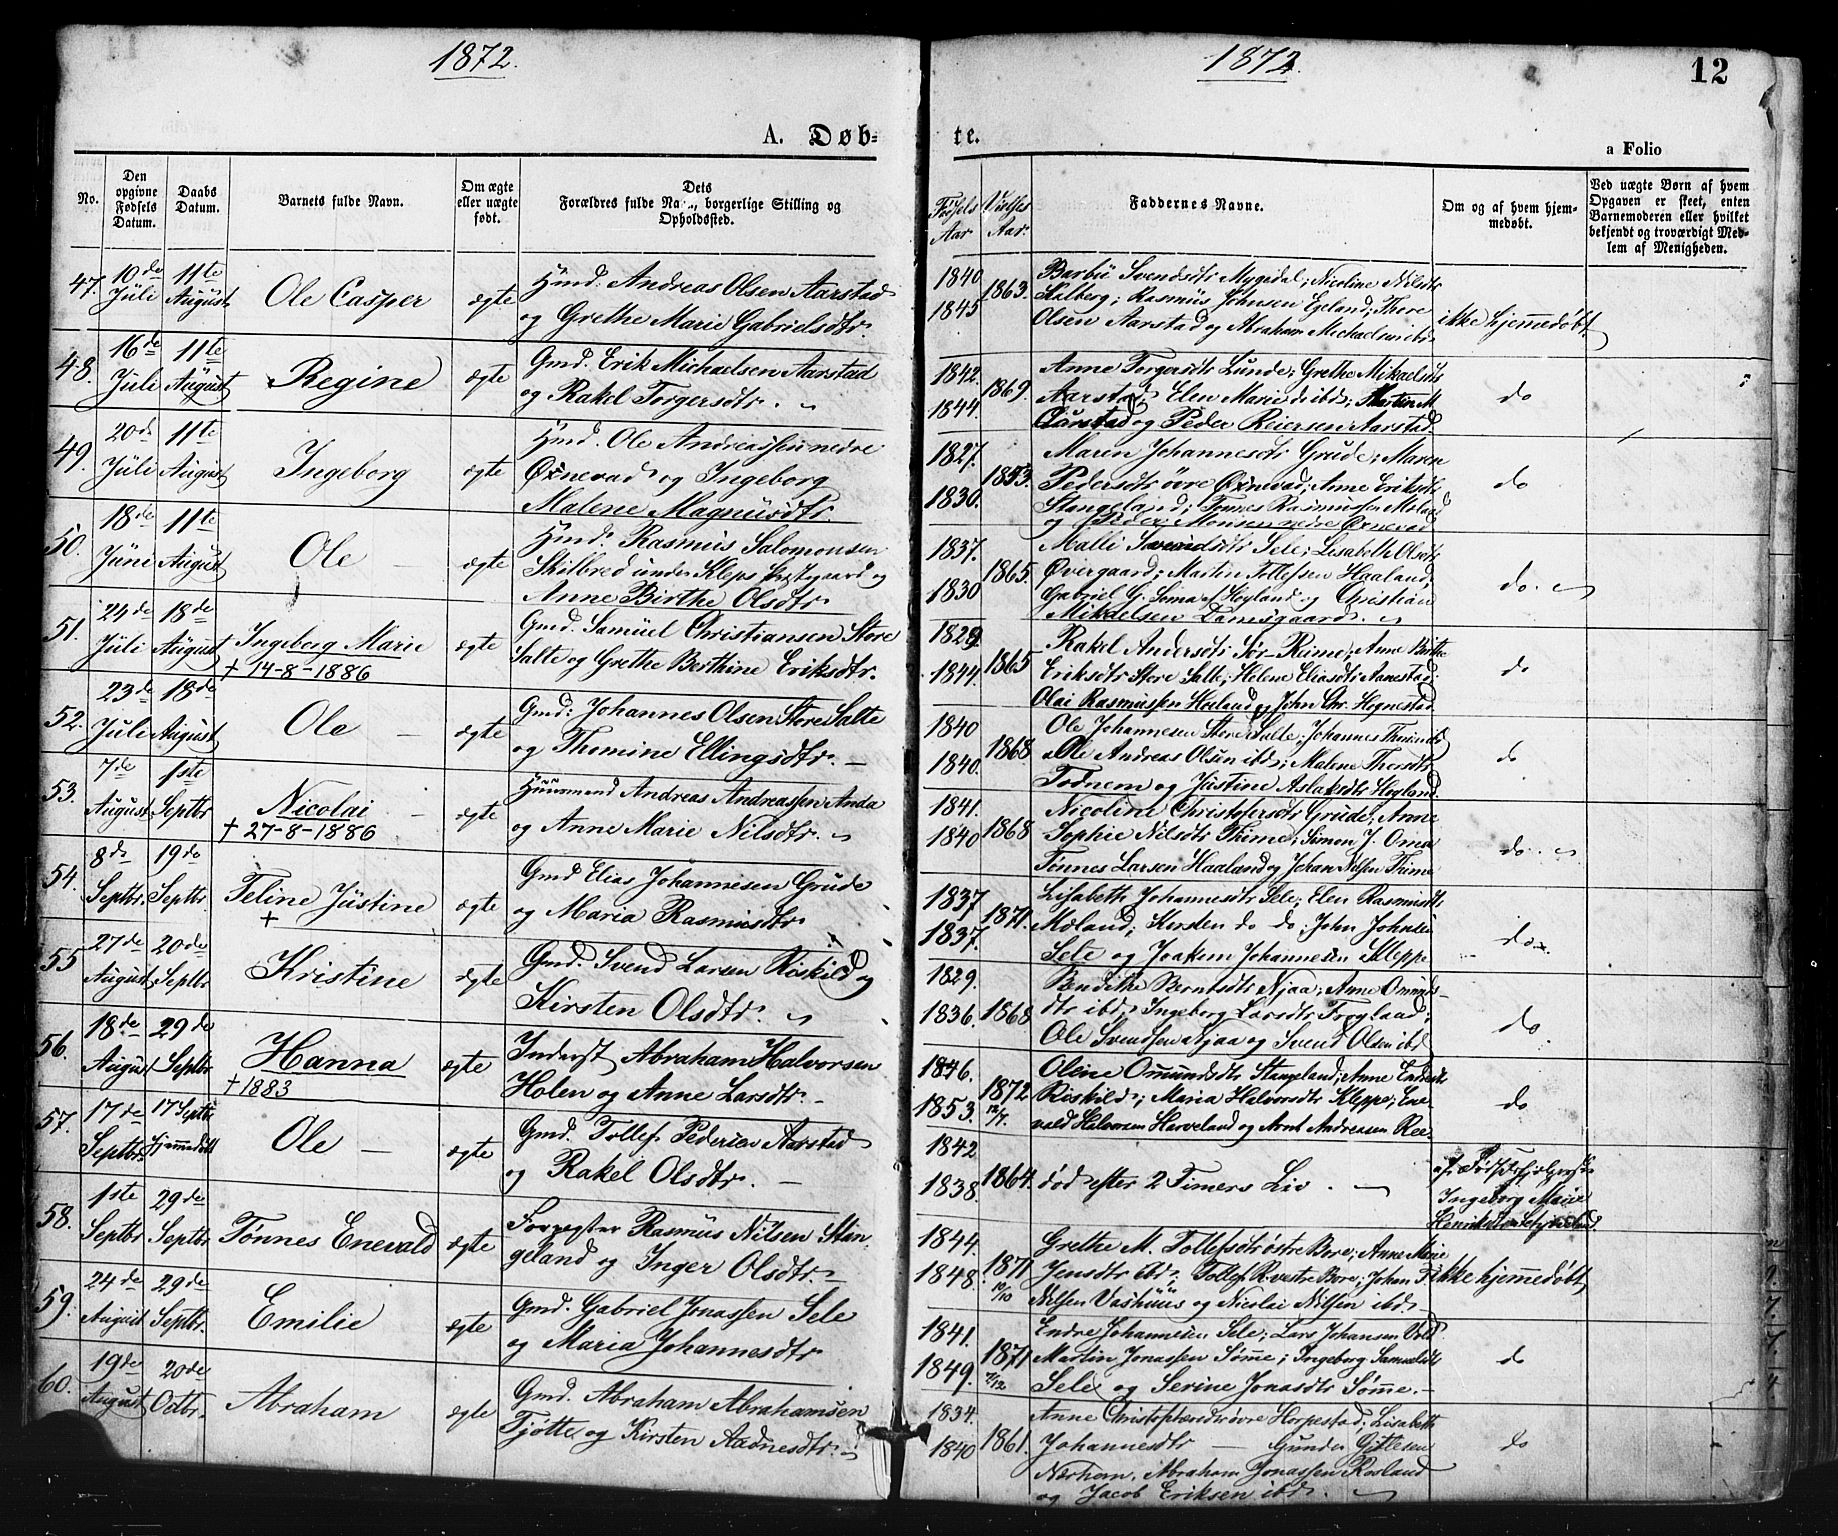 1872.
1872.
12
A. Døb=
te.
a Folio
No.
Den opgivne Fødsels Datum.
Daabs Datum.
Barnets fulde Navn.
Om ægte eller uægte født.
Dets Forældres fulde Navn, borgerlige Stilling og Opholdssted.
Fødsels Aar
Vielses Aar.
Faddernes Navne.
Om og af hvem hjemmedøbt.
Ved uægte Børn af hvem Opgaven er skeet, enten Barnemoderen eller hvilket bekjendt og troværdigt Medlem af Menigheden.
47. 10de Juli 11te August Ole Casper ægte
Hmd. Andreas Olsen Aarstad
og Grethe Marie Gabrielsdtr.
1840 1845 1863.
Barbü Svendsdtr Mygedal; Nicoline Nilsdtr
Kalberg; Rasmüs Johnsen Egeland; Thore
Olsen Aarstad og Abraham Michaelsen ibd.
ikke hjemmedøbt
48. 16de Juli 11te August Regine ægte
Gmd. Erik Michaelsen Aarstad
og Rakel Torgersdtr.
1842. 1844. 1869.
Anne Torgersdtr Lunde; Grethe Mikaelsdtr
Aarstad; Elen Marie do ibd; Martin M.
Aarstad og Peder Reiersen Aarstad.
do
49. 20de Jüli 11te August Ingeborg ægte
Hmd. Ole Andreassen nedre
Øxnevad og Ingeborg
Malene Magnüsdtr.
1827. 1830. 1853.
Maren Johannesdtr Grude; Maren
Pedersdtr øvre Øxnevad; Anne Eriksdtr
Stangeland; Tønnes Rasmussen
og Peder Monsen nedre Øxnevad
do
50. 18de Jüni 11te August Ole ægte
Hmd. Rasmüs Salomonsen
Skilbred under Kleps Prestgaard og
Anne Birthe Olsdtr.
1837. 1830 1865.
Malli Svendsdtr Sele; Lisabeth Olsdtr
Øvergaard; Martin Tollefsen Haaland
Gabriel G. Soma af Høyland og Christian
Mikaelsen
do.
51. 24de Jüli 18de August Ingeborg Marie ægte
+ 14-8-1886
Gmd. Samüel Christiansen Store
Salte og Grethe Berthine Eriksdtr.
1829 1844. 1865
Rakel Andersdtr Sør-Reime; Anne Birthe
Eriksdtr Store Salte; Helene Eliasdtr Aanestad;
Olai Rasmussen Hæland og John Chr. Hognestad.
do
52. 23de Jüli 18de August Ole ægte
Gmd: Johannes Olsen Store Salte
og Thomine Ellingsdtr.
1840 1840. 1868
Ole Johannesen Store Salte; Johannes
Ole Andreas Olsen ibd; Malene Thorsdtr
Todnem og Jüstine Aslaksdtr Høyland.
do
53. 7de August 1ste Septbr Nicolai ægte
+ 27-8-1886
Huusmand Andreas Andreassen Anda
og Anne Marie Nilsdtr.
1841. 1840 1868
Nicoline Christofersdtr Grüde; Anne
Sophie Nilsdtr Thime; Simon J. Oma
Tønnes Larsen Haaland og Johan Nilsen Thime
do.
54. 8de Septbr. 19de Septbr. Feline Jüstine ægte
+
Gmd Elias Johannesen Grüde
og Maria Rasmusdtr.
1837 1837. 1871.
Lisabeth Johannesdtr Sele; Elen Rasmusdtr
Mæland; Kersten do do; John Johnsen
Sele og Joakem Johannesen Kleppe
do
55 27de August 20de Septbr Kristine ægte
Gmd. Svend Larsen Röskild og
Kirsten Olsdtr.
1829. 1836. 1868
Bendithe Berntsdtr Njaa; Anne Omunds-
dtr ibd, Ingeborg Larsdtr Frøyland;
Ole Svendsen Njaa og Svend Olsen ibd
do
56. 18de August 29de Septbr Hanna ægte
+ 1883
Inderst Abraham Halvorsen
Holen og Anne Larsdtr.
1846. 1853. 1872
Oline Omundsdtr Stangeland; Anne Endresdtr
Röskild; Maria Halvorsdtr Kleppe; Ene-
vald Halvorsen Harveland og Arnt Andreasen Ree.
do
57. 17de Septbr. 17 Septbr hjemmedøbt Ole ægte
Gmd. Tollef Pedersen Aarstad
og Rakel Olsdtr.
1842 1838. 1864.
død efter 2 Timers Liv.
af
Ingeborg Marie
58. 1ste Septbr 29de Septbr Tønnes Enevald ægte
Forpagter Rasmüs Nilsen Stan-
geland og Inger Olsdtr.
1844. 1848. 1871 19/10
Grethe M. Tollefsdtr østre Bore; Anne Marie
Jensdtr ibd; Tollef R. vestre Bore; Johan
Nilsen Vashüüs og Nicolai Nilsen ibd.
ikke hjemmedøbt
59. 24de August 29de Septbr. Emilie ægte
Gmd. Gabriel Jonassen Sele
og Maria Johannesdtr
1841. 1849. 1871 7/12
Endre Johannesen Sele; Lars Johansen Vold
Martin Jonassen Sømme; Ingeborg Samuelsdtr
Sele og Serine Jonasdtr Sømme.
do
60. 19de August 20de Octbr. Abraham ægte
Gmd. Abraham Abrahamsen
Tjøtte og Kirsten Aadnesdtr.
1834. 1840 1861.
Anne Christophersdtr øvre Horpestad; Lisabeth
Johannesdtr — Gunder Gitlesen
Nærheim, Abraham Jonassen Rosland
og Jacob Eriksen ibd.
do